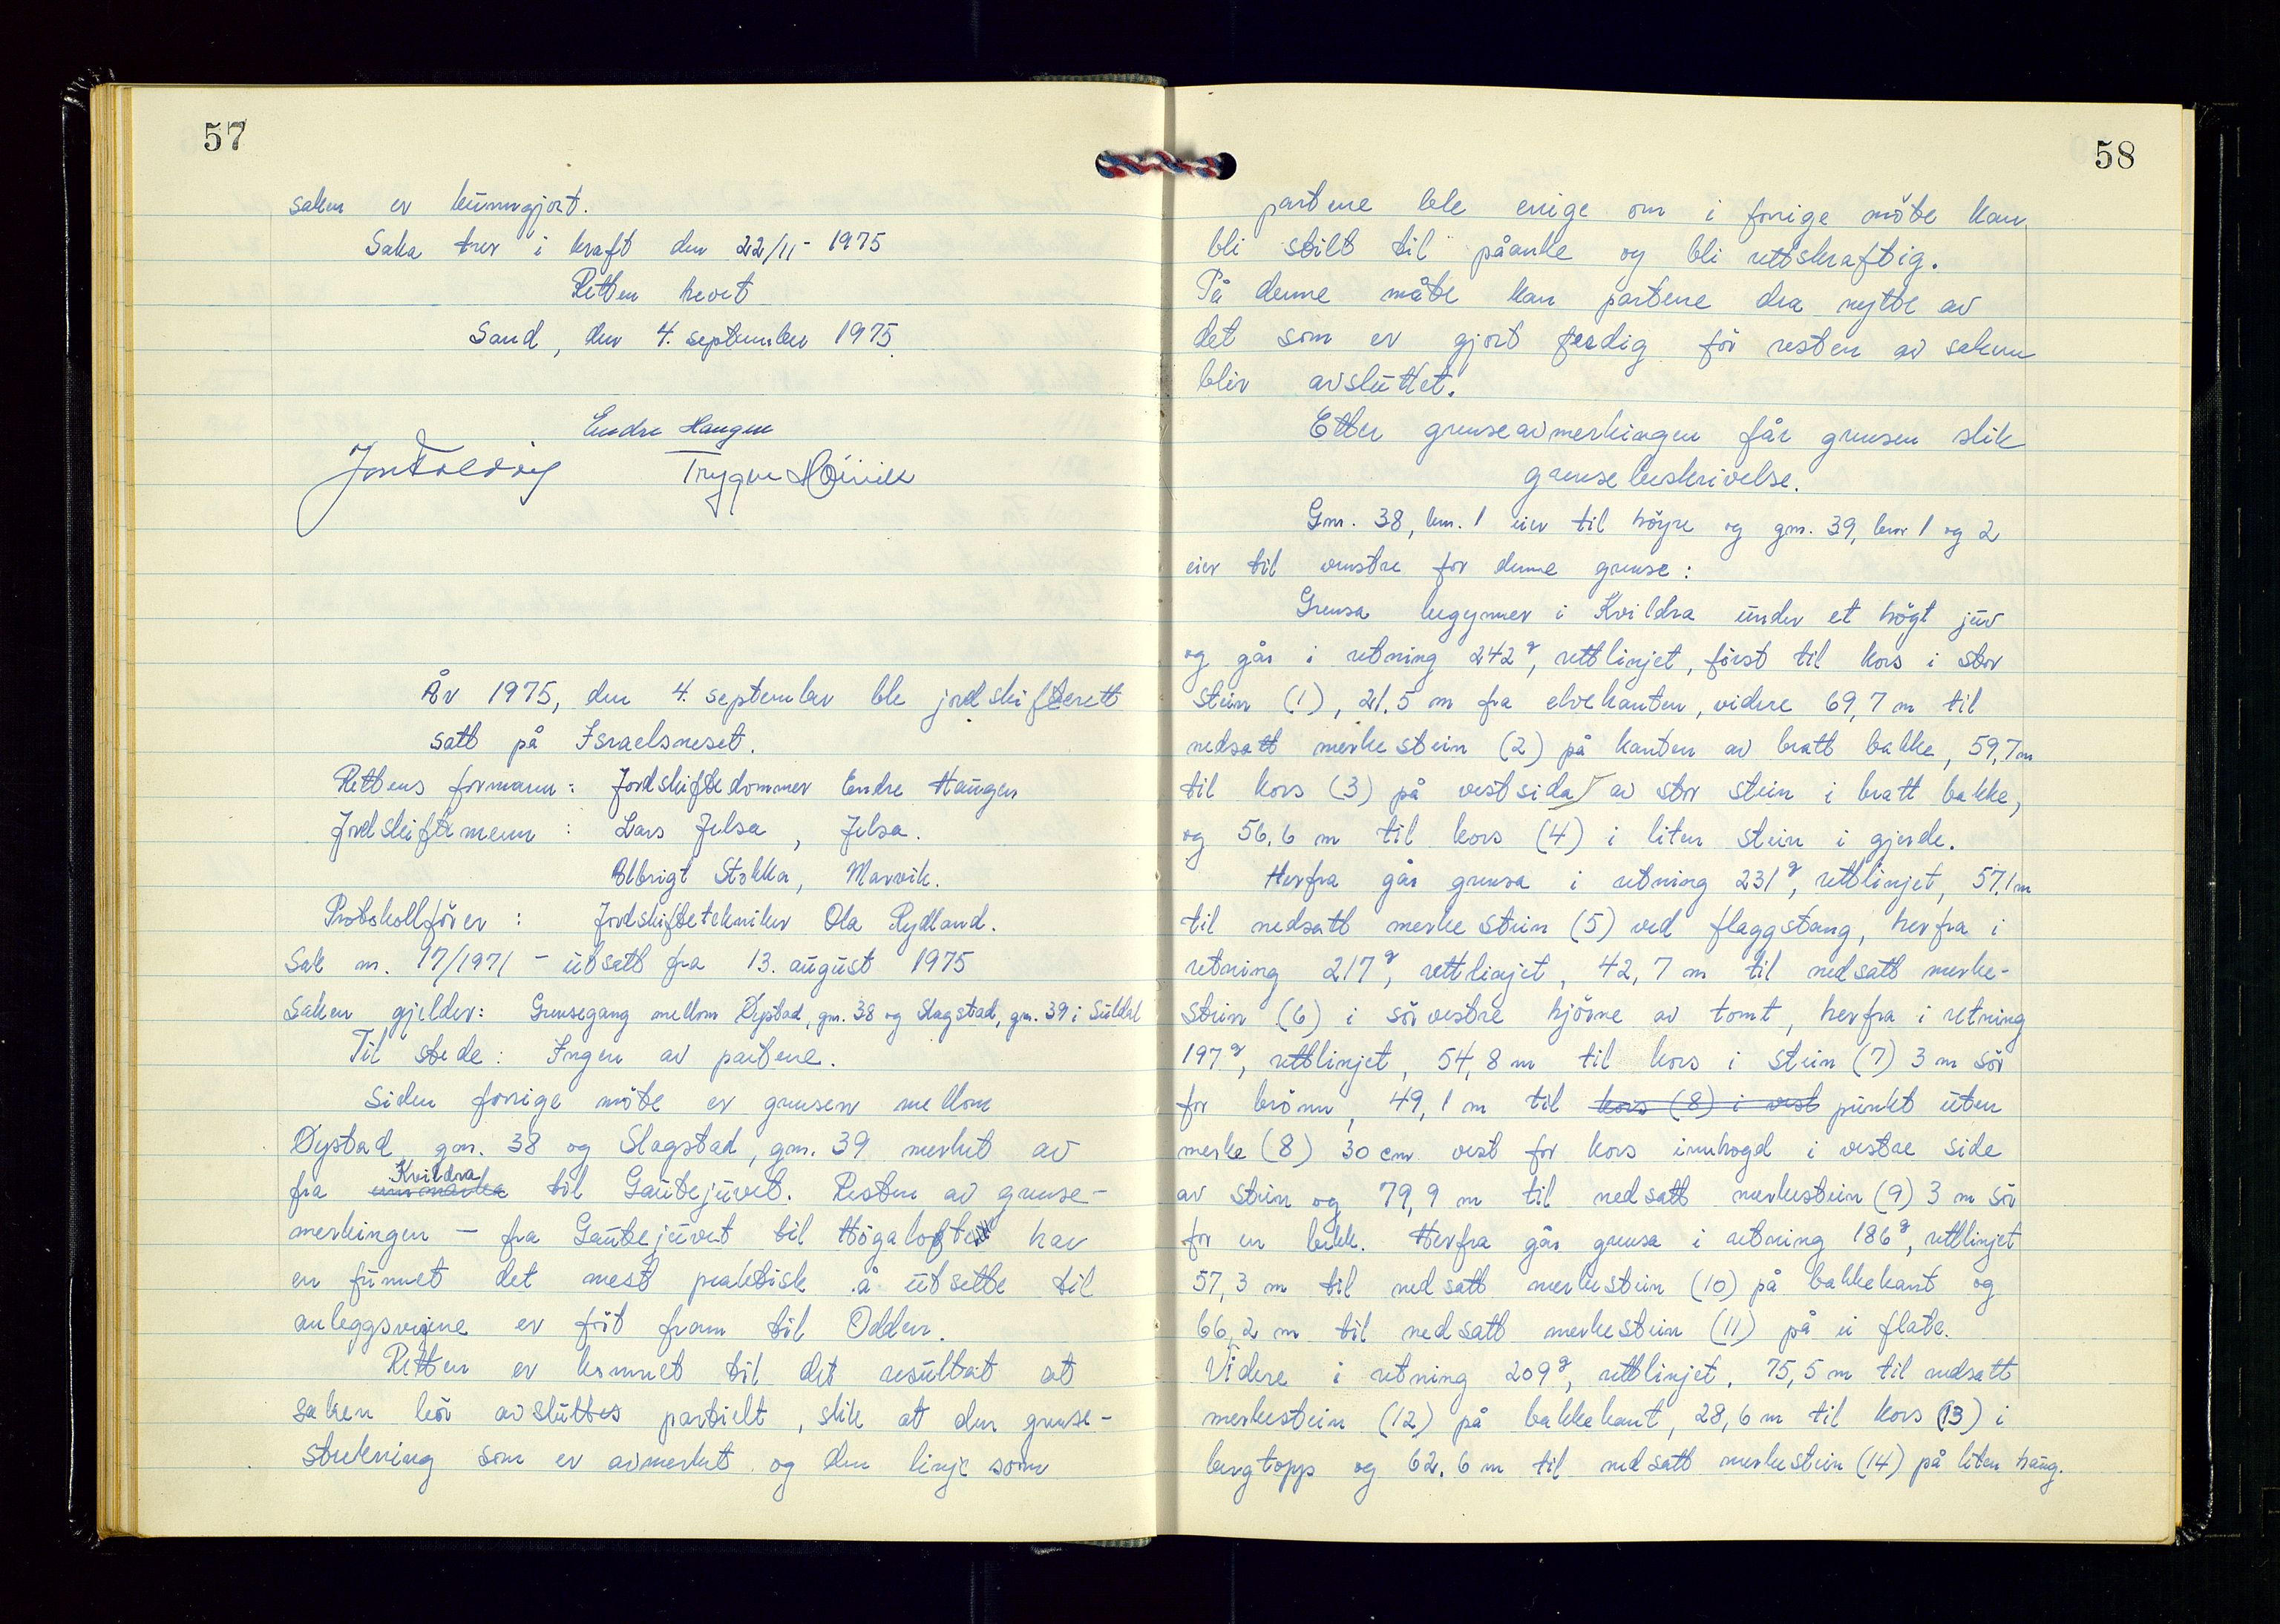 57
saken er kunngjort.
Saka trer i kraft den 22/11- 1975
Retten hevet
Sand, den 4. september 1975.
Endre Haugen
Trygve Høivik
År 1975, den 4. september ble jordskifterett
satt på Israelsneset.
Rettens formann: Jordskiftedommer Endre Haugen
Jordskiftemenn: Lars Jelsa, Jelsa.
Olbrigt Stokka, Marvik.
Protokollfører: Jordskiftetekniker Ola Rydland.
Sak nr. 17/1971 - utsatt fra 13. august 1975
Saken gjelder: Grensegang mellom Øystad, gnr. 38 og Slagstad, gnr. 39 i Suldal
Til stede: Ingen av partene.
Siden forrige møte er grensen mellom
Øystad gnr. 38 og Slagstad, gnr. 39 merket av
Kvildra
fra til Gautejuvet. Resten av grense-
merkingen - fra Gautejuvet til Høgalofta har
en funnet det mest praktisk å utsette til
anleggsveiene er ført fram til Odden.
Retten er kommet til det resultat at
saken bør avsluttes partielt, slik at den grense-
strekning som er avmerket og den linje som
58
partene ble enige om i forrige møte kan
bli stilt til påanke og bli rettskraftig.
På denne måte kan partene dra nytte av
det som er gjort ferdig før resten av saken
blir avsluttet.
Etter grenseavmerkingen får grensen slik
grensebeskrivelse.
Gnr. 38, bnr. 1 eier til høyre og gnr. 39, bnr 1 og 2
eier til venstre for denne grense:
Grensa begynner i Kvildra under et høgt juv
og går i retning 242g, rettlinjet, først til kors i stor
stein (1), 21.5 m fra elvekanten, videre 69,7 m til
nedsatt merkestein (2) på kanten av bratt bakke, 59,7m
til kors (3) på vestsida av stor stein i bratt bakke,
og 56,6 m til kors (4) i liten stein i gjerde.
Herfra går grensa i retning 231g, rettlinjet, 57,1m
til nedsatt merkestein (5) ved flaggstang, herfra i
retning 217g, rettlinjet, 42,7 m til nedsatt merke-
stein (6) i sørvestre hjørne av tomt, herfra i retning
197g, rettlinjet, 54,8 m til kors i stein (7) 3 m sør
for brønn, 49,1 m til kors (8) i vest punkt uten
merke (8) 30 cm vest for kors innhogd i vestre side
av stein og 79,9 m til nedsatt merkestein (9) 3 m sør
for en bekk. Herfra går grensa i retning 186g, rettlinjet
57,3 m til nedsatt merkestein (10) på bakkekant og
66,2 m til nedsatt merkestein (11) på ei flate.
Videre i retning 209g, rettlinjet, 75,5 m til nedsatt
merkestein (12) på bakkekant, 28,6 m til kors (13) i
bergtopp og 62.6 m til nedsatt merkestein (14) på liten haug.